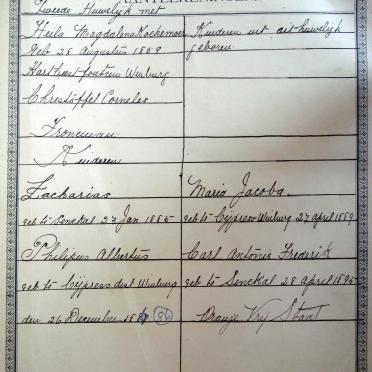 AANTEEKENINGEN
Tweede Huwelijk met
Heila Magdalena Kockemoer
Kinderen uit dit huwelijk
geb 28 Augustus 1859
geboren
Hartbeesfontein Winburg
Christoffel Cornelis
Froneman
Kinderen
Zacharias
Maria Jacoba
geb te Senekal 27 Jan 1885
geb te Cijpress Winburg 27 april 1889
Philipus Albertus
Carl Antonie Frederik
geb te Cijpress dist Winburg
geb te Senekal 28 april 1895
den 26 December 188 (86)
Oranje Vrij Staat